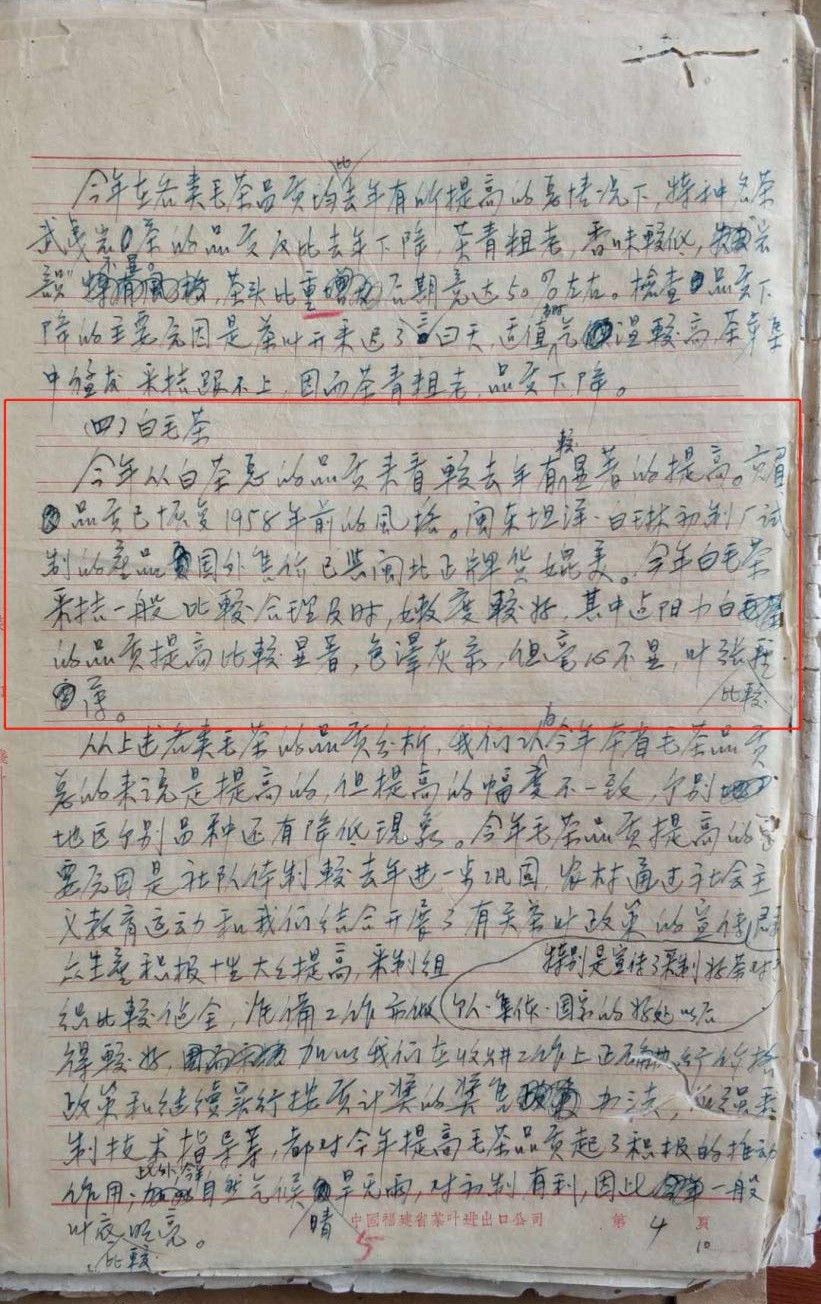 今年在各类毛茶品质均比去年有所提高的总情况下,特种名茶
武夷岩茶的品质反比去年下降,茶青粗老,香味较低,岩
韵"不显,茶头比重后期竟达50%左右。检查品质下
降的主要原因是茶叶开采迟了三四天,适值当时气温较高,茶芽集
中猛发,采摘跟不上,因而茶青粗老,品质下降。
(四)白毛茶
今年从白茶总的品质来看較去年有較显著的提高。貢眉
品质已恢复1958年前的風格。闽东坦洋·白琳初制厂试
制的產品国外售价已与闽北正牌货媲美。今年白毛茶
采摘一般比較合理及时,嫩度較好,其中建阳水白
的品质提高比較显著,色澤灰亮,但毫心不显,叶张
比較薄。
从上述各类毛茶的品质分析,我们认为今年本省毛茶品质
总的来说是提高的,但提高的幅度不一致,个别
地区个别品种还有降低现象。今年毛茶品质提高的主
要原因是社队体制較去年进一步巩固,农村通过社会主
义教育运动和我们结合开展了有关茶叶政策的宣传,群
众生產积极性大大提高,采制组
特别是宣传了采制好茶对
个人·集体·国家的好处以后
织比較健全,准备工作亦做
得較好,加以我们在收购工作上正确执行价格
政策和继续实行按质计奖的奖售办法,加强采
制技术指导等,都对今年提高毛茶品质起了积极的推动
作用;此外,今年自然气候晴旱无雨,对初制有利,因此一般
叶底比較明亮。
中國福建省茶叶进出口公司 第4頁
5
10